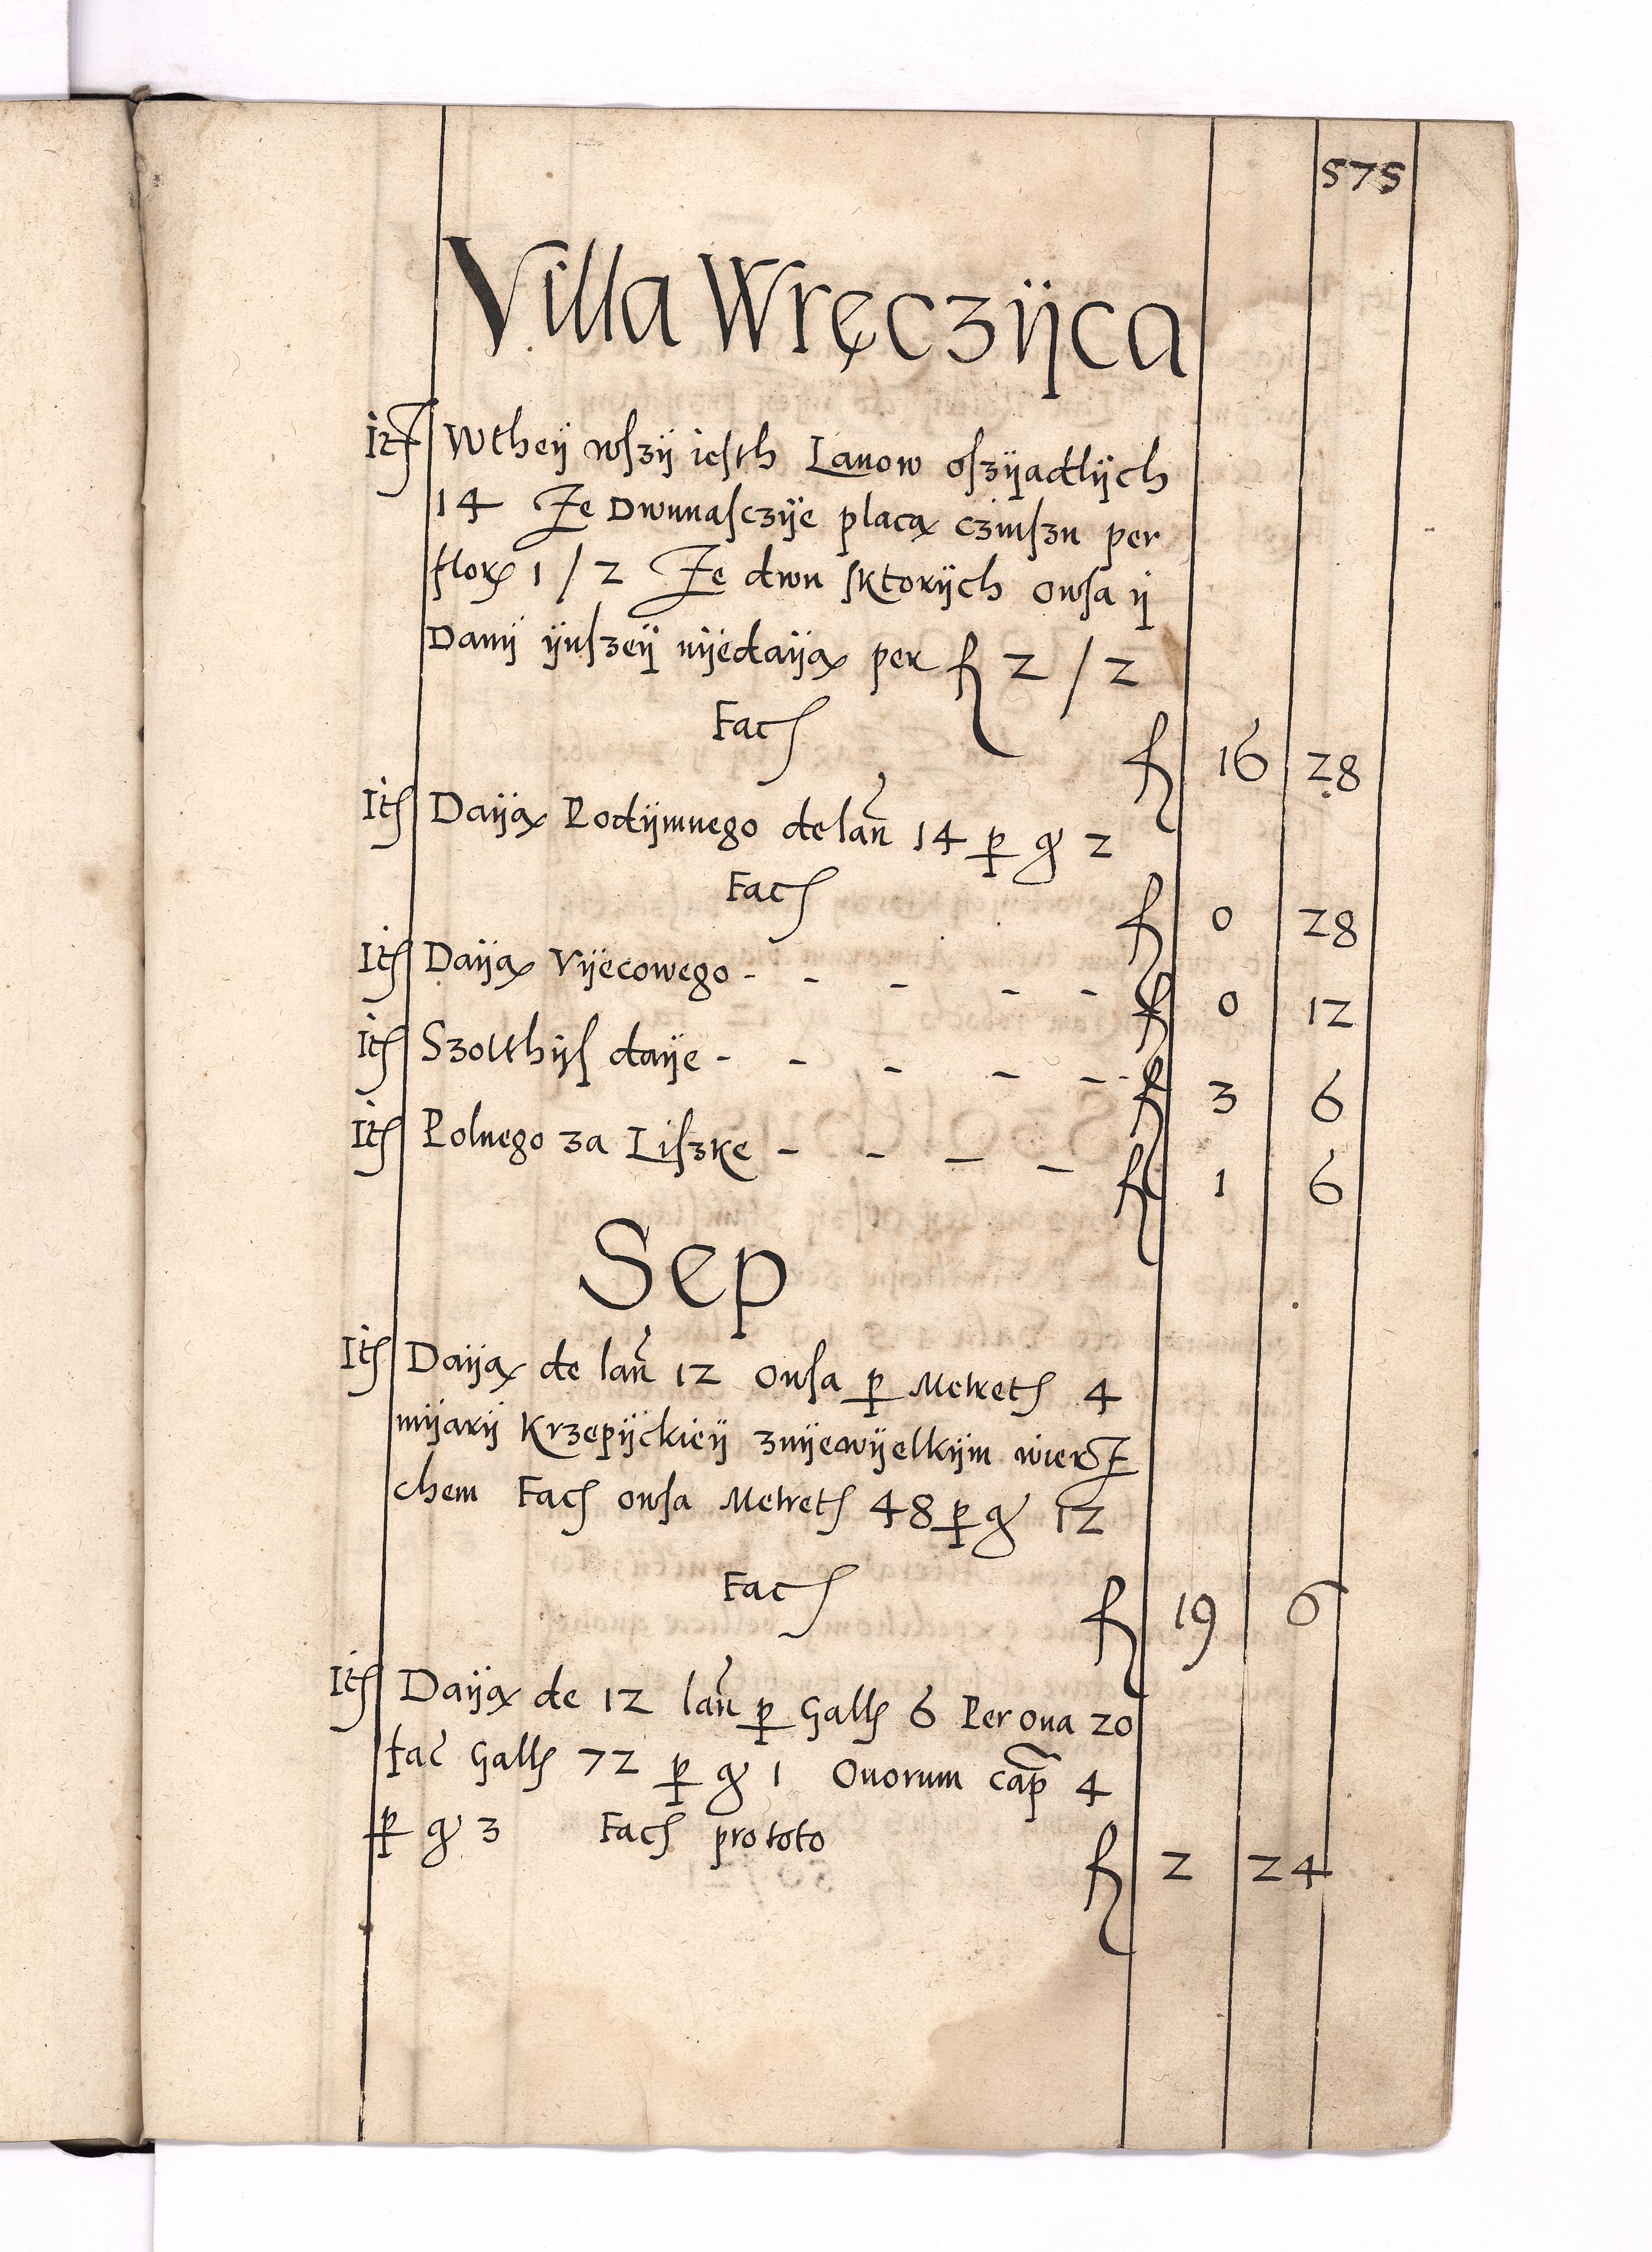 575
Villa Wręczÿca
Itē Wtheÿ wſzÿ ieſth Lanow oſzÿadlÿch
14 Ze Dwunaſczÿe placą czinſzu per
flor 1 / 2 Ze dwu ſktorÿch owſa ÿ
Danÿ ÿnſzeÿ nÿedaÿą per f 2 / 2
Fac f 16 28
Itē Daÿą Podÿmnego de lan̄ 14 p̱ gr 2
Fac f 0 28
Itē Daÿą Vÿecowego - - - - - f 0 12
Itē Szolthÿſ daÿe - - - - - f 3 6
Itē Polnego za Liſzke - - - - f 1 6
Sep
Itē Daÿą de lan̄ 12 owſa p̱ Metret 4
mÿarÿ Krzepÿckieÿ znÿewÿelkÿm wierz
chem Fac owſa Metret 48 p̱ gr 12
Fac f 19 6
Itē Daÿą de 12 lan̄ p̱ Gall 6 Per oua 20
fac Gall 72 p̱ gr 1 Ouorum cap̄ 4
p̱ gr 3 Fac pro toto f 2 24